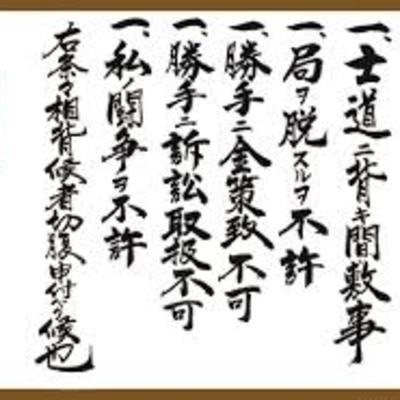 一、士道ニ背キ間敷事
一、局ヲ脱スルヲ不許
一、勝手ニ金策致不可
一、勝手ニ訴訟取扱不可
一、私ノ闘争ヲ不許
右条々相背候者切腹申付ベク候也